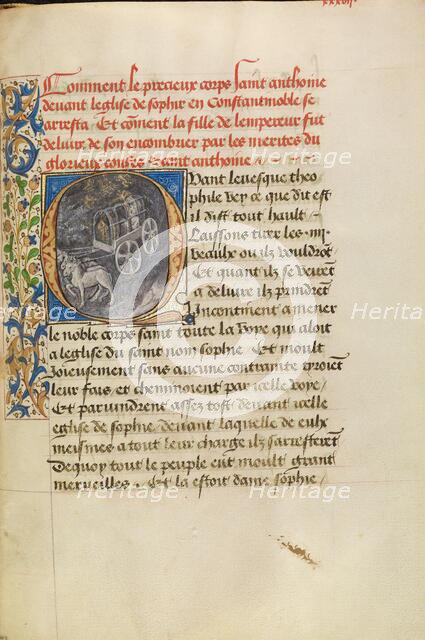 xxxvii.
Comment le precieux corps saint anthoine
deuant leglise de sophie en Constantinoble se
arresta / Et coment la fille de lempereur fut
deliuree de son encombrier par les merites du
glorieux corps saint anthoine
Quant leuesque theo
phile vey ce que dit est
il dist tout hault /
Laissons tirer les
beaulx ou ilz vouldront
Et quant ilz se veirent
a deliure ilz prindrent
Incontinent a mener
le noble corps saint toute la voye qui aloit
a leglise du saint nom sophie / Et moult
Joieusement sans aucune contrainte
leur fais et cheminoient par icelle voye /
Et paruindrent assez tost deuant icelle
eglise de sophie deuant laquelle de eulx
meismes a tout leur charge ilz sarresterent
Dequoy tout le peuple eut moult grant
merueilles / Et la estoit dame sophie /
Heritage
Heritage
Heritage
Heritage
Heritage
Heritage
Heritage